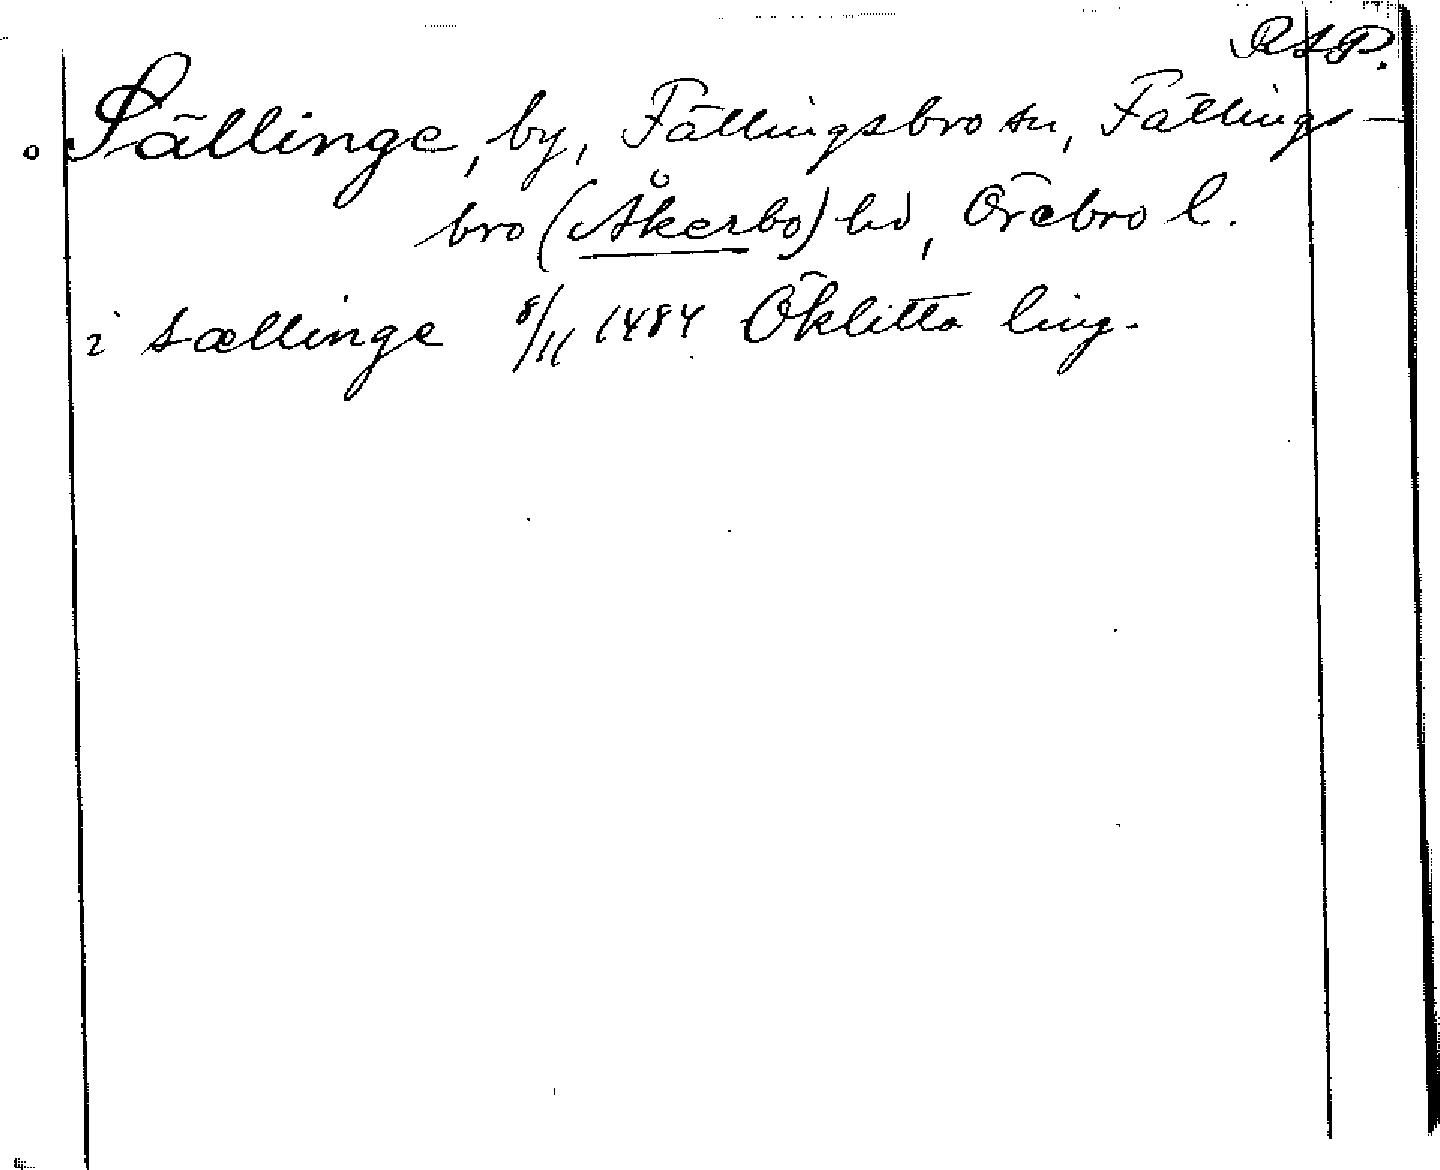 RAP.
Sällinge, by, Fällingsbro sn, Fällings-
bro (Åkerbo) hd, Örebro l.
i sællinge 8/11 1484 Öklitta ling.